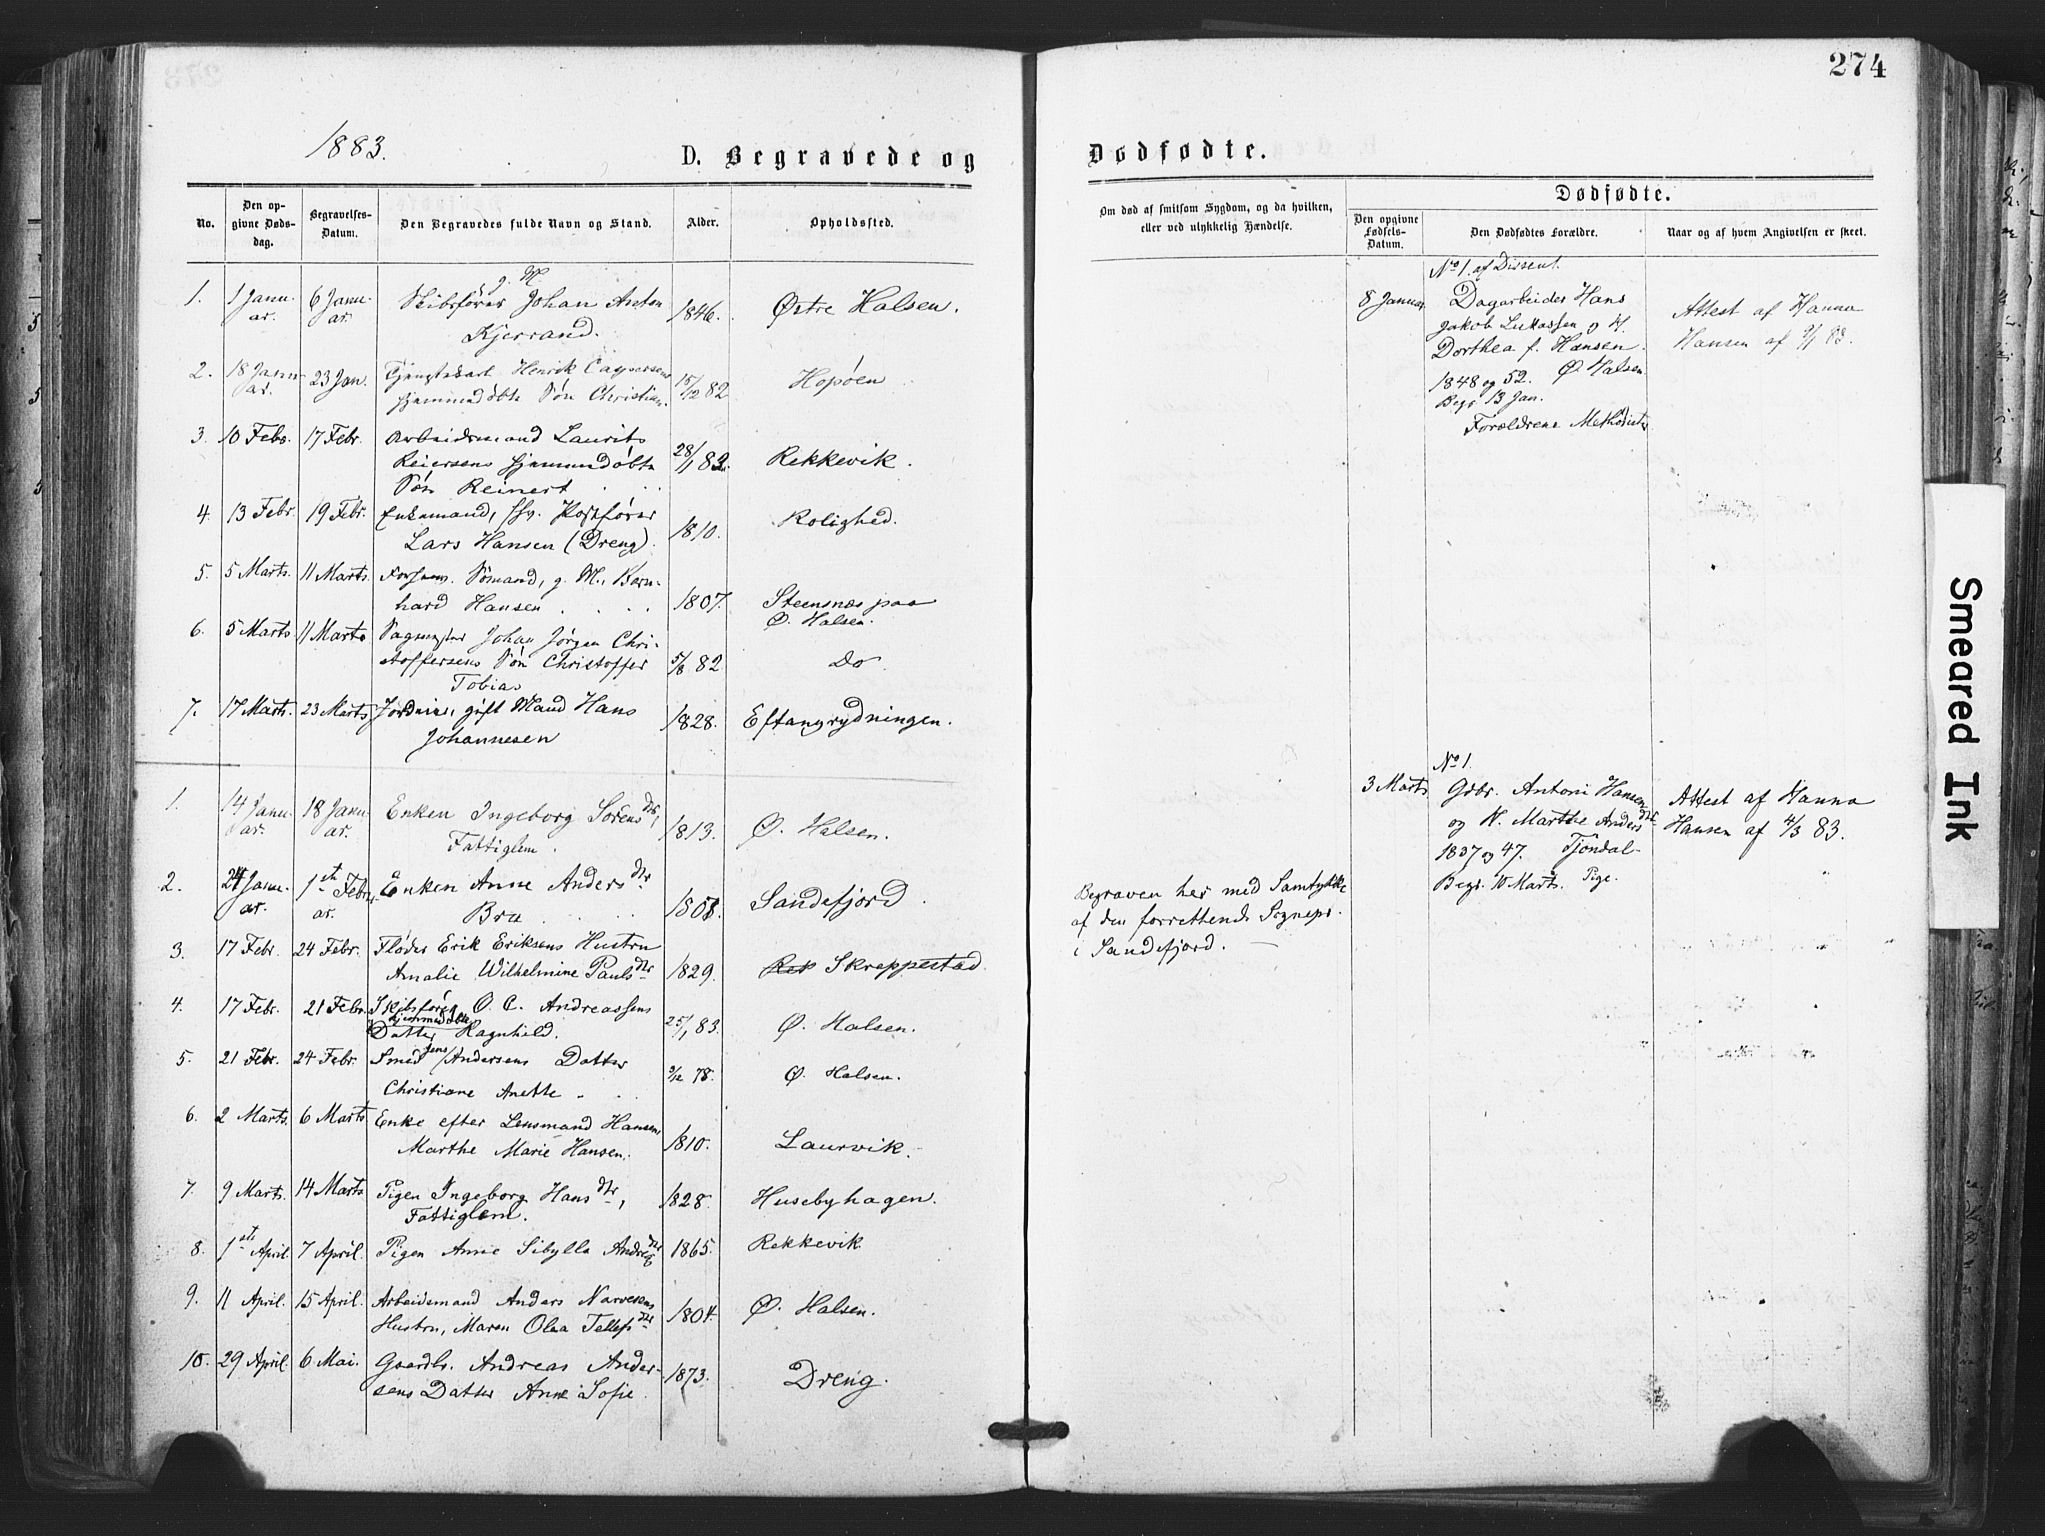 274
1883.
D. Begravede og Dødfødte.
No.
Den opgivne Dødsdag.
Begravelses-Datum.
Den Begravedes fulde Navn og Stand.
Alder.
Opholdssted.
Om død af smitsom Sygdom, og da hvilken,
eller ved ulykkelig Hændelse.
Dødfødte.
Den opgivne Fødsels-Datum.
Den Dødfødtes Forældre.
Naar og af hvem Angivelsen er skeet.
1. 1 Janu-ar. 6 Janu-ar. g. M.
Skibsfører Johan Anton
Kjerrand. 1846. Østre Halsen.
2. 18 Janu-ar. 23 Jan. Henrik Caspersens
hjemmedøbte Søn Christian. 15/12 82 Hopøen
3. 10 Febr. 17 Febr. Arbeidsmand Laurits
Reiersens hjemmedøbte
Søn Reinert 28/1 83. Rekkevik.
4. 13 Febr. 19 Febr. Enkemand, fhv.
Lars Hansen (Dreng). 1810. Rolighed.
5. 5 Marts. 11 Marts. Sømand, g. M., Bern-
hard Hansen 1807. Steensnæs paa
Ø. Halsen.
6. 5 Marts 11 Marts Sagmester Johan Jørgen Chri-
stoffersens Søn Christoffer
Tobias 5/8 82 Do
7. 17 Marts. 23 Marts gift Mand Hans
Johannesen 1828. Eftangrydningen.
1. 14 Janu-ar. 18 Janu-ar. Enken Ingeborg Sørensdtr,
Fattiglem. 1813. Ø. Halsen.
2. 24 Janu-ar. 1ste Febru-ar. Enken Anne Andersdtr
Bra 1808. Sandefjord.
3. 17 Febr. 24 Febr. Fløder Erik Eriksens Hustru
Amalie Wilhelmine Paulsdtr 1829. Skreppestad.
4. 17 Febr. 21 Febr. Skibsfører O. C. Andreassens
hjemmedøbte
Datter Ragnhild. 25/1 83. Ø. Halsen.
5. 21 Febr. 24 Febr. Smed Jens Andersens Datter
Christiane Anette 9/12 78. Ø. Halsen.
6. 2 Marts. 6 Marts Enke efter Lensmand Hansen,
Marthe Marie Hansen. 1810. Laurvik.
7. 9 Marts. 14 Marts Pigen Ingeborg Hansdtr,
Fattiglem. 1828. Husebyhagen.
8. 1ste April. 7 April. Pigen Anne Sibylla 1865. Rekkevik
9. 11 April. 15 April. Arbeidsmand Anders Narvesens
Hustru, Maren Olea Tellefsdtr 1804. Ø. Halsen.
10. 29 April. 6 Mai. Gaardbr. Andreas Ander-
sens Datter Anne Sofie. 1873. Dreng.
No 1. af Dissent.
8 Januar Dagarbeider Hans
Jakob Lukassen og H.
Dorthea f. Hansen.
1848 og 52. Ø. Halsen.
Begr 13 Jan.
Forældrene Methodister
Attest af Hanna
Hansen af 9/1 83.
No 1.
3 Marts Gdbr. Antoni Hansen
og H. Marthe Andersdtr
1837 og 47. Tjøndal-
Begr. 10 Marts. Pige.
Attest af Hanna
Hansen af 4/3 83.
Begraven her med Samtykke
af den forrettende Sognepr.
i Sandefjord.
Smeared Ink